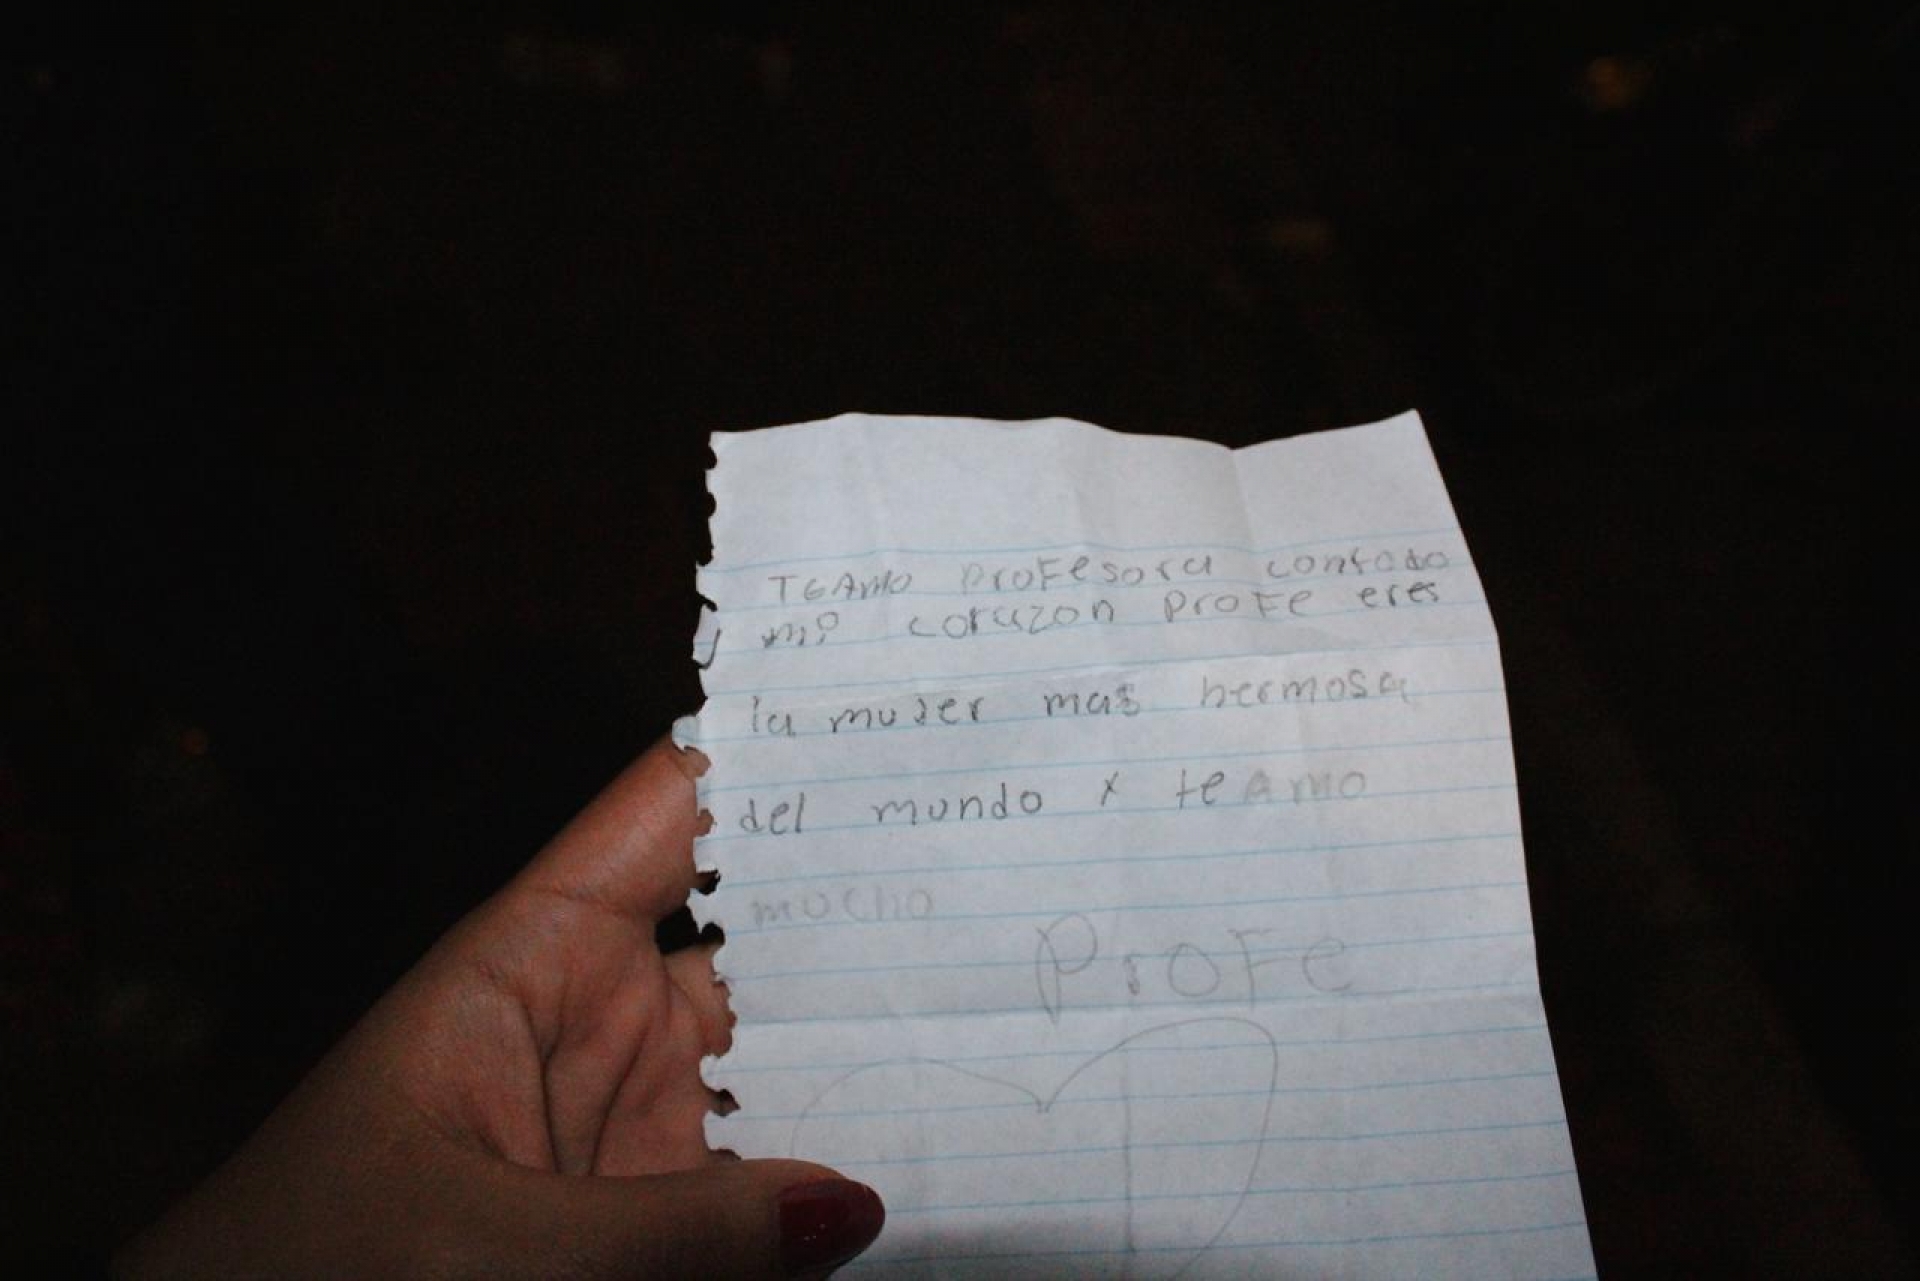 TEAMO PROFesora contodo
mi corazon Profe eres
la muJer mas hermosa
del mundo x te AMO
mucho
ProFe